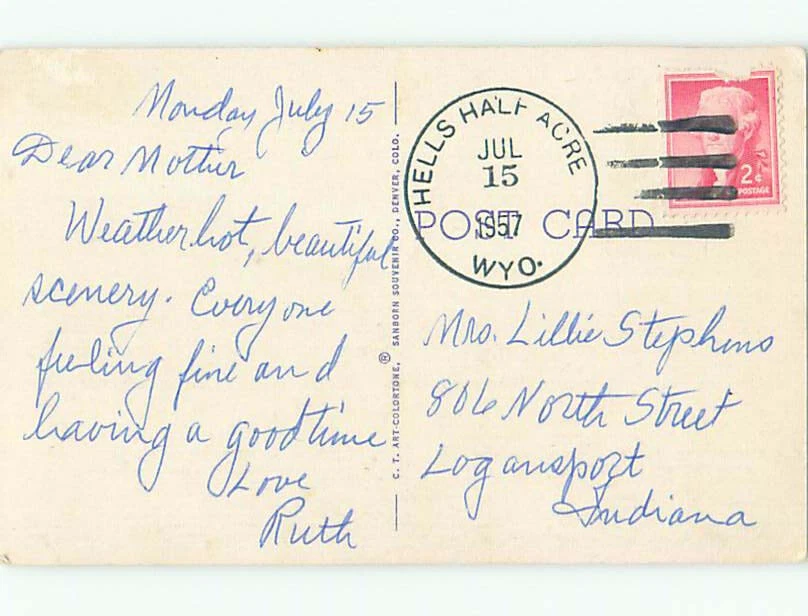 Monday July 15
Dear Mother
Weather hot, beautiful
scenery. Everyone
feeling fine and
having a good time
Love
Ruth
C. T. ART-COLORTONE, ® SANBORN SOUVENIR CO., DENVER, COLO.
HELLS HALF ACRE
JUL
15
1957
WYO.
2¢
POSTAGE
POST CARD
Mrs. Lillie Stephens
806 North Street
Logansport
Indiana